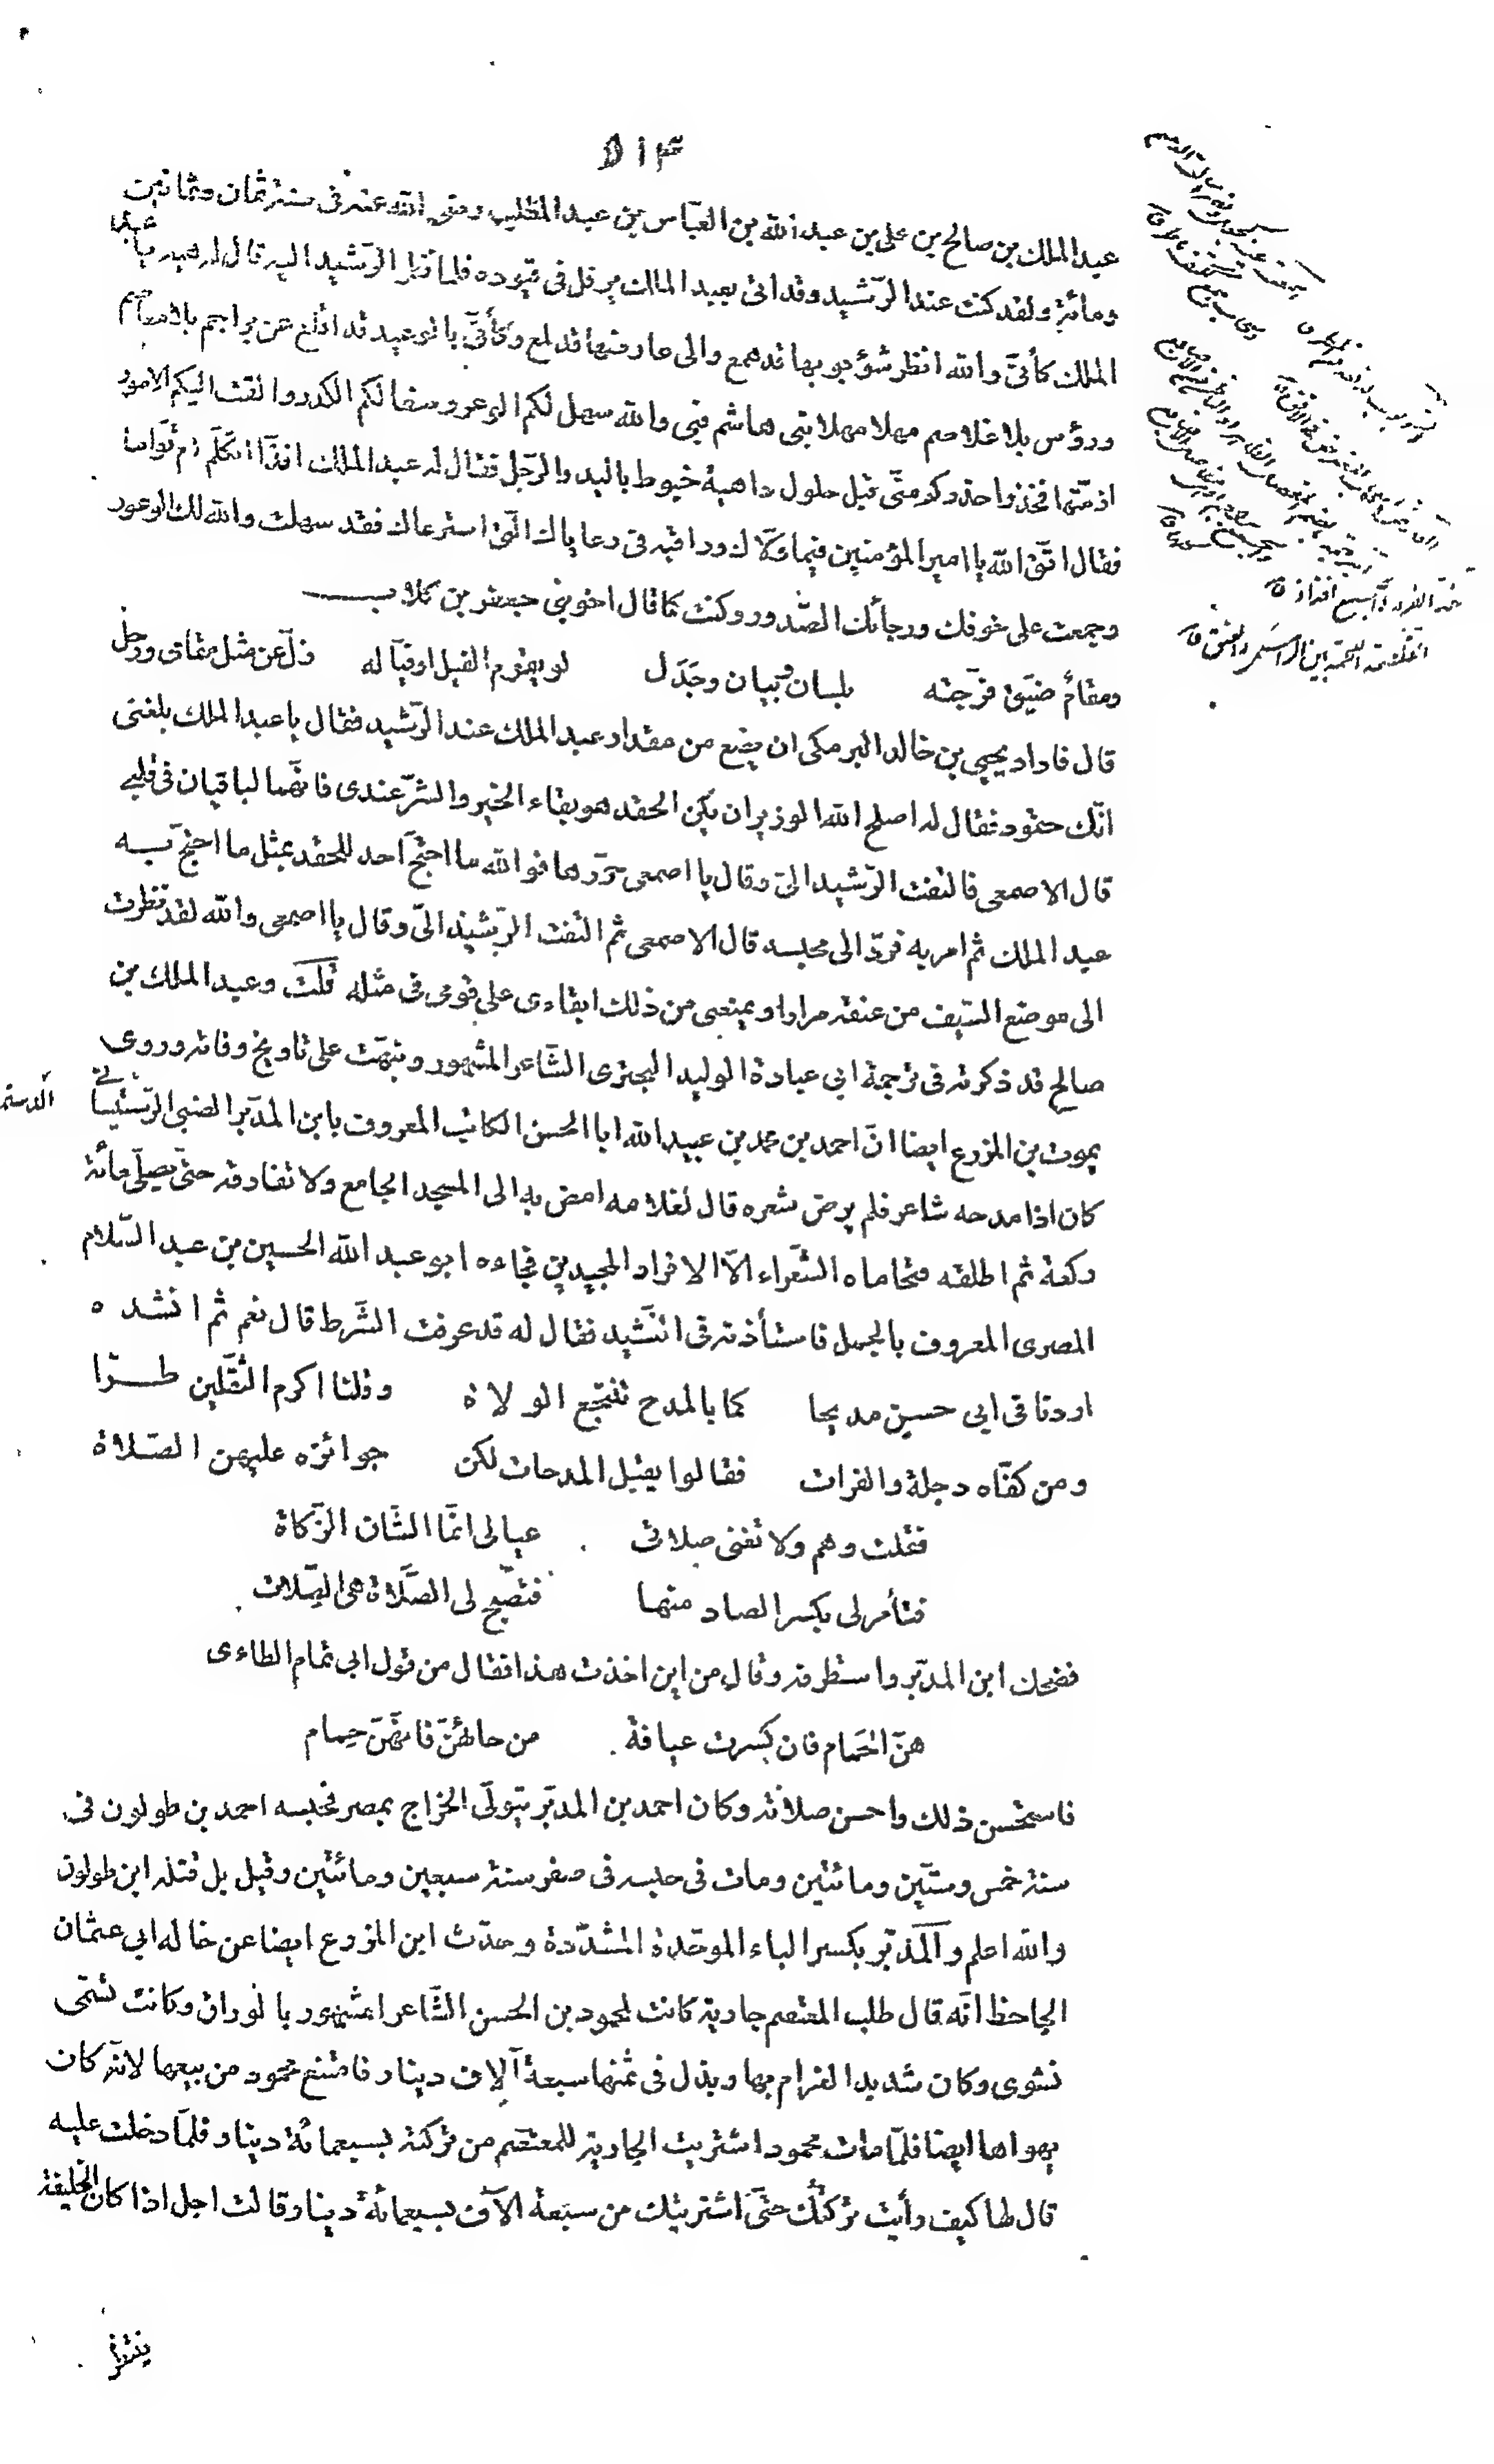 ۵۱۴
عبد الملك بن صالح بن على بن عبد الله بن العبّاس بن عبد المطّلب رضى الله عنه فى سنة ثمان وثمانين
ومائة ولقد كنت عند الرّشيد وقد اتى بعبد الملك يرفل فى قيوده فلما نظر الرّشيد اليه قال له هيه يا عبد
الملك كأنّى والله انظر شؤبوبها قد همع والى عارضها قد لمع وكأنّى بالوعيد قد اقلع عن براجم بلا معاصم
ورؤس بلا غلاصم مهلا مهلا بنى هاشم فبى والله سهل لكم الوعر وصفا لكم الكدر والقت اليكم الامور
ازمّتها فخذوا حذركم منّى قبل حلول داهية خبوط باليد والرّجل فقال له عبد الملك افذّا اتكلّم ام تؤاما
فقال اتّق الله يا امير المؤمنين فيما ولّاك وراقبه فى رعاياك الّتى استرعاك فقد سهلت والله لك الوعور
وجمعت على خوفك ورجائك الصّدور وكنت كما قال اخو بنى جعفر بن كلاب
ومقام ضيّق فرّجته بلسان وبيان وجدل لو يقوم الفيل او فيّاله زلّ عن مثل مقامى وزحل
قال فاراد يحيى بن خالد البرمكى ان يضع من مقدار عبد الملك عند الرّشيد فقال يا عبد الملك بلغنى
انّك حقود فقال له اصلح الله الوزير ان يكن الحقد هو بقاء الخير والشّرّ عندى فانّهما لباقيان فى قلبى
قال الاصمعى فالتفت الرّشيد الىّ وقال يا اصمعى حرّرها فوالله ما احتجّ احد للحقد بمثل ما احتجّ به
عبد الملك ثم امر به فردّ الى محبسه قال الاصمعى ثم التفت الرّشيد الىّ وقال يا اصمعى والله لقد نظرت
الى موضع السّيف من عنقه مرارا ويمنعنى من ذلك ابقاءى على قومى فى مثله قلت وعبد الملك بن
صالح قد ذكرته فى ترجمة ابى عبادة الوليد البحترى الشّاعر المشهور ونبهّت على تاريخ وفاته وروى
يموت بن المزرع ايضا انّ احمد بن محمد بن عبيد الله ابا الحسن الكاتب المعروف بابن المدّبر الضبى الرّستيسانى
كان اذا مدحه شاعر فلم يرض شعره قال لغلامه امض به الى المسجد الجامع ولا تفارقه حتّى يصلّى مائة
ركعة ثم اطلقه فتحاماه الشّعراء الّا الافراد المجيدين فجاءه ابو عبد الله الحسين بن عبد السّلام
المصرى المعروف بالجمل فاستأذنه فى النّشيد فقال له قد عرفت الشّرط قال نعم ثم انشده
اردنا فى ابى حسين مديحا كما بالمدح تنتجّع الولاة وقلنا اكرم الثّقلين طرّا
ومن كفّاه دجلة والفرات فقالوا يقبل المدحات لكن جوائزه عليهن الصّلاة
فقلت وهم ولا تغنى صلاتى عيالى انمّا الشّان الزّكاة
فتأمر لى بكسر الصاد منها فتصّبح لى الصّلاة هى الصّلات
فضحك ابن المدّبر واستظرفه وقال من اين اخذت هذا فقال من قول ابى تمام الطاءى
هنّ الحَمام فان كسرت عيافة من حائهنّ فانهّنّ حِمام
فاستحسن ذلك واحسن صلاته وكان احمد بن المدبّر يتولّى الخراج بمصر فحبسه احمد بن طولون فى
سنة خمس وستّين ومائتين ومات فى حبسه فى صفر سنة سبعين ومائتين وقيل بل قتله ابن طولون
والله اعلم والمدّبر بكسر الباء الموحّدة المشدّدة وحدّث ابن المزرع ايضا عن خاله ابى عثمان
الجاحظ انّه قال طلب المعتصم جارية كانت لمحمود بن الحسن الشّاعر المشهور بالوراق وكانت تسمّى
نشوى وكان شديد الغرام بها وبذل فى ثمنها سبعة آلاف دينار فامتنع محمود من بيعها لانّه كان
يهواها ايضا فلمّا مات محمود اشتريت الجارية للمعتصم من تركته بسبعمائة دينار فلمّا دخلت عليه
قال لها كيف رأيت تركتك حتّى اشتريتك من سبعة الآف بسبعمائة دينار قالت اجل اذا كان الخليفة
ينتظر